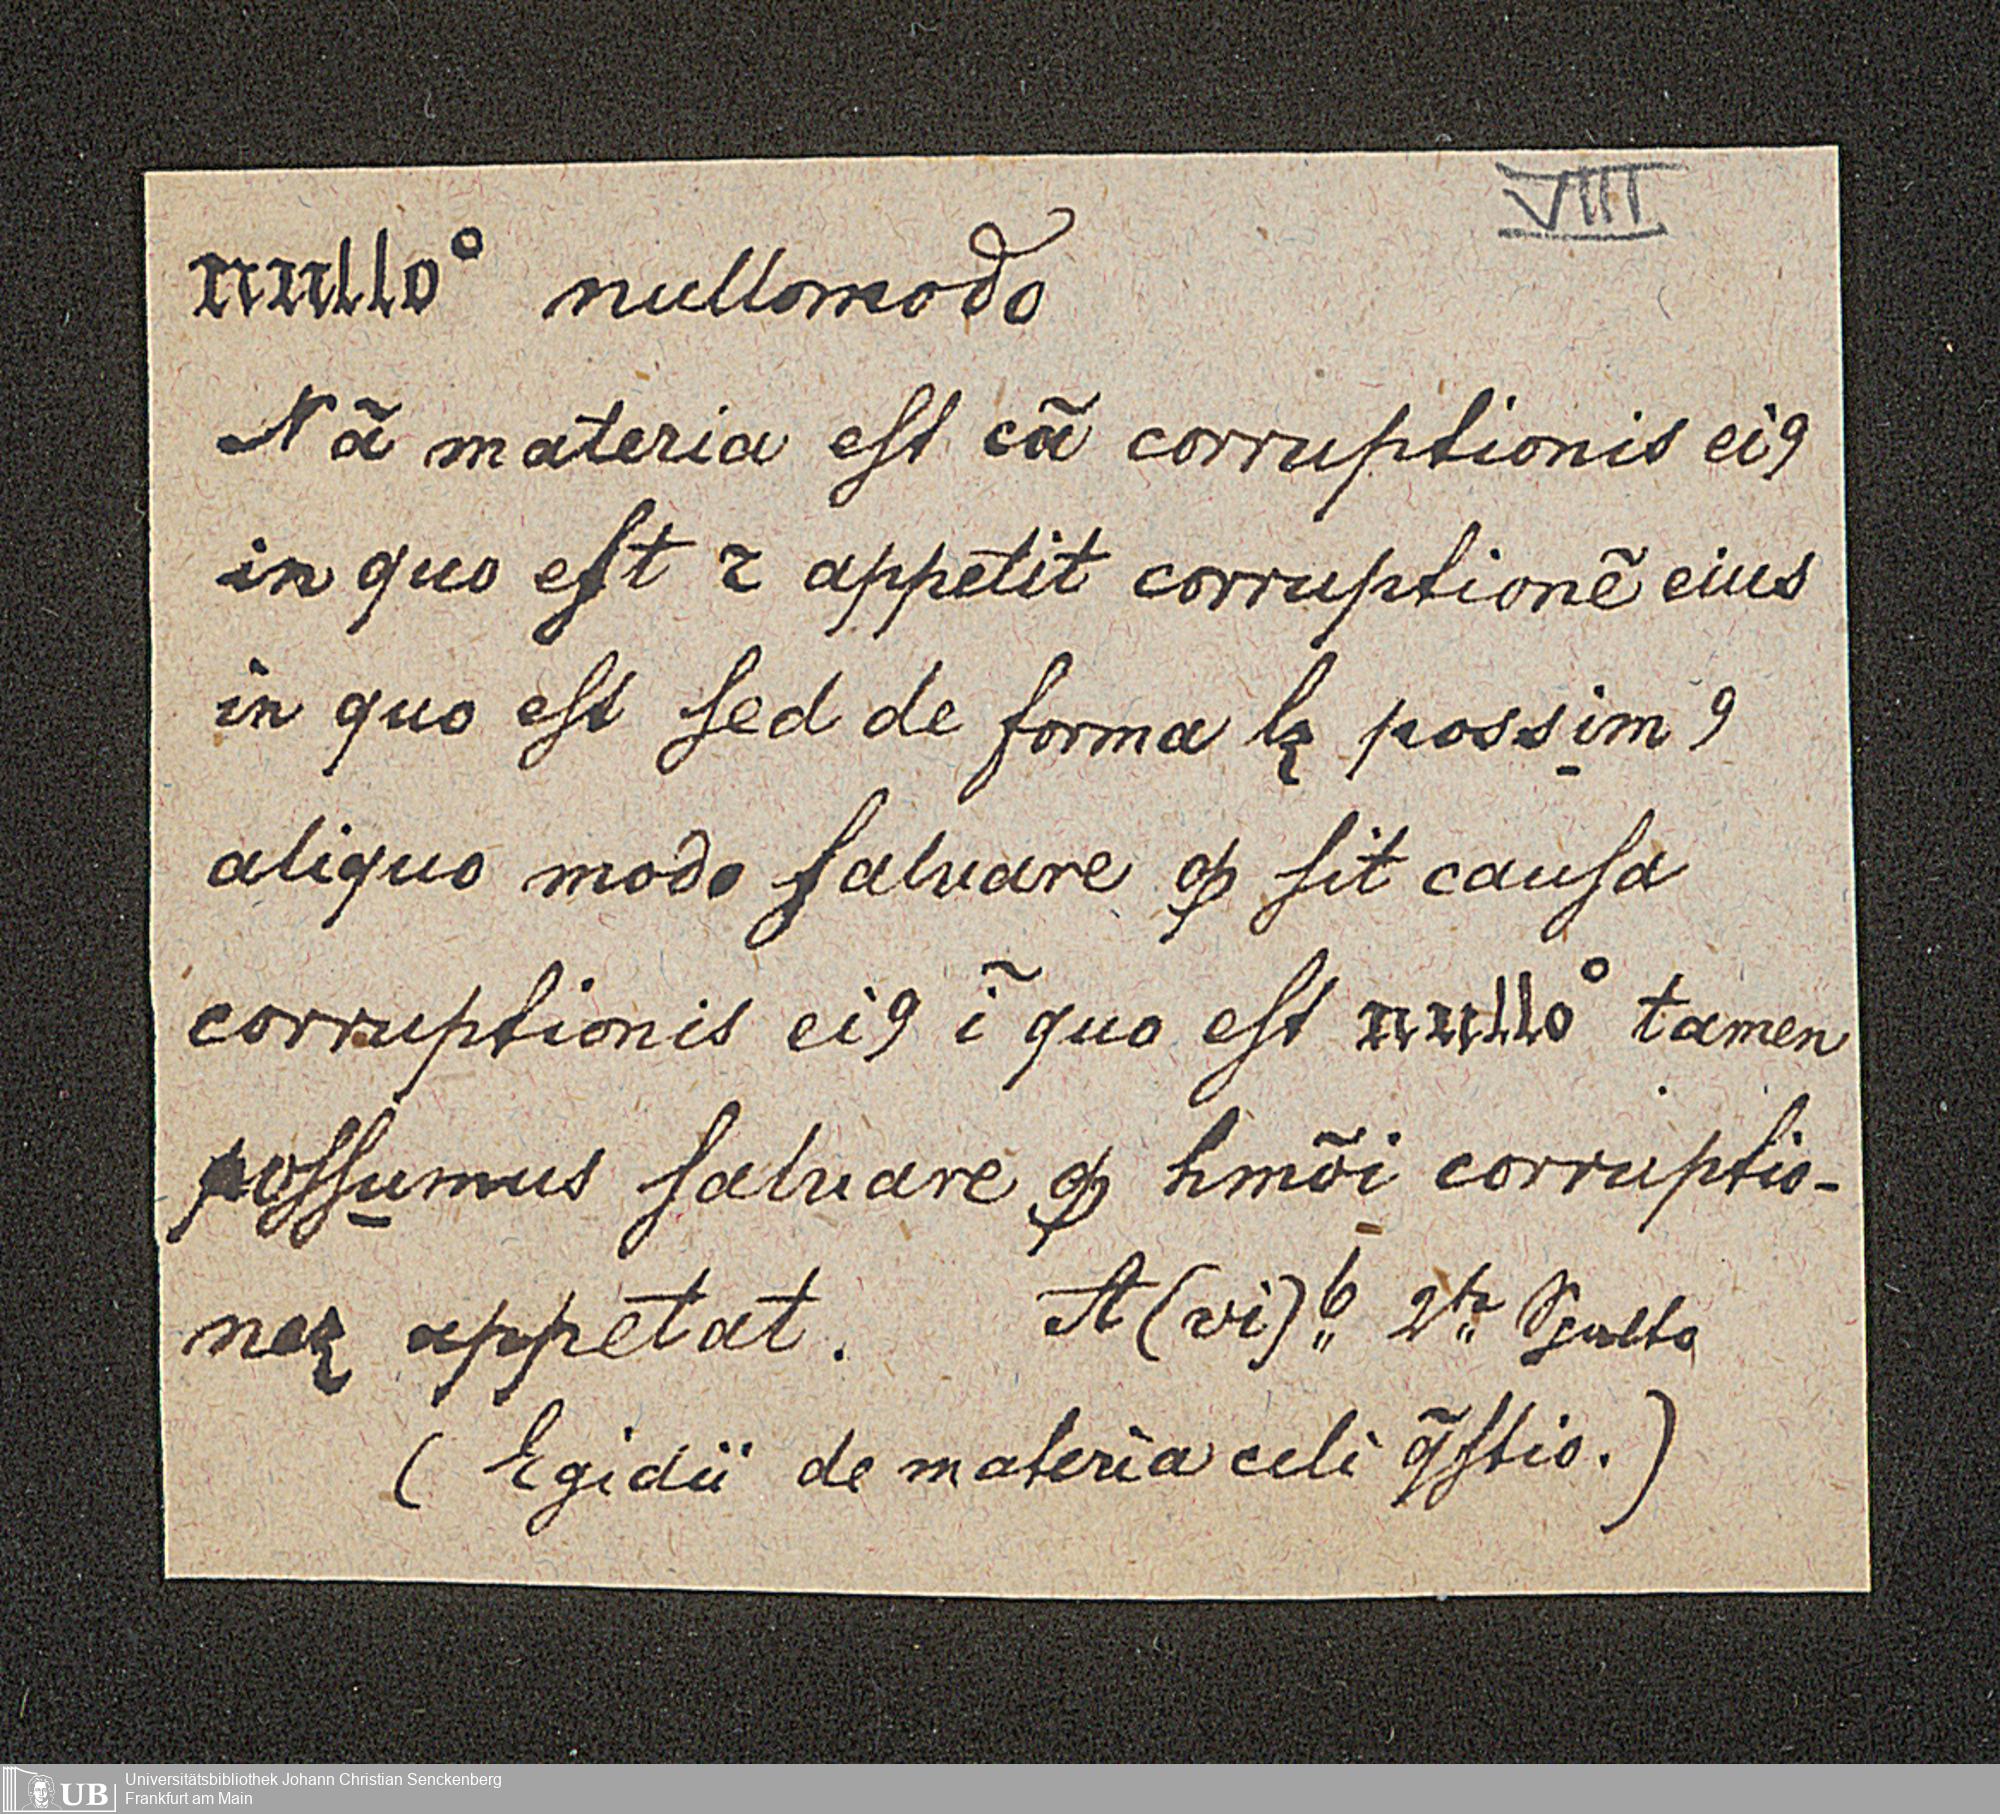 VIII
nulloº nullomodo
Nã materia est cã corruptionis eiꝯ
in quo eſt ⁊ appetit corruptionẽ eius
in quo eſt ſed de forma lꝫ possimꝯ
aliquo modo ſaluare ꝙ ſit cauſa
corruptionis eiꝯ ĩ quo eſt nulloº tamen
poſſumus ſaluare ꝙ hmõi corruptio-
neꝫ appetat. A(vi)b 2te Spalte
(Egidii de materia celi q̃ſtio.)
Universitätsbibliothek Johann Christian Senckenberg
Frankfurt am Main
UB